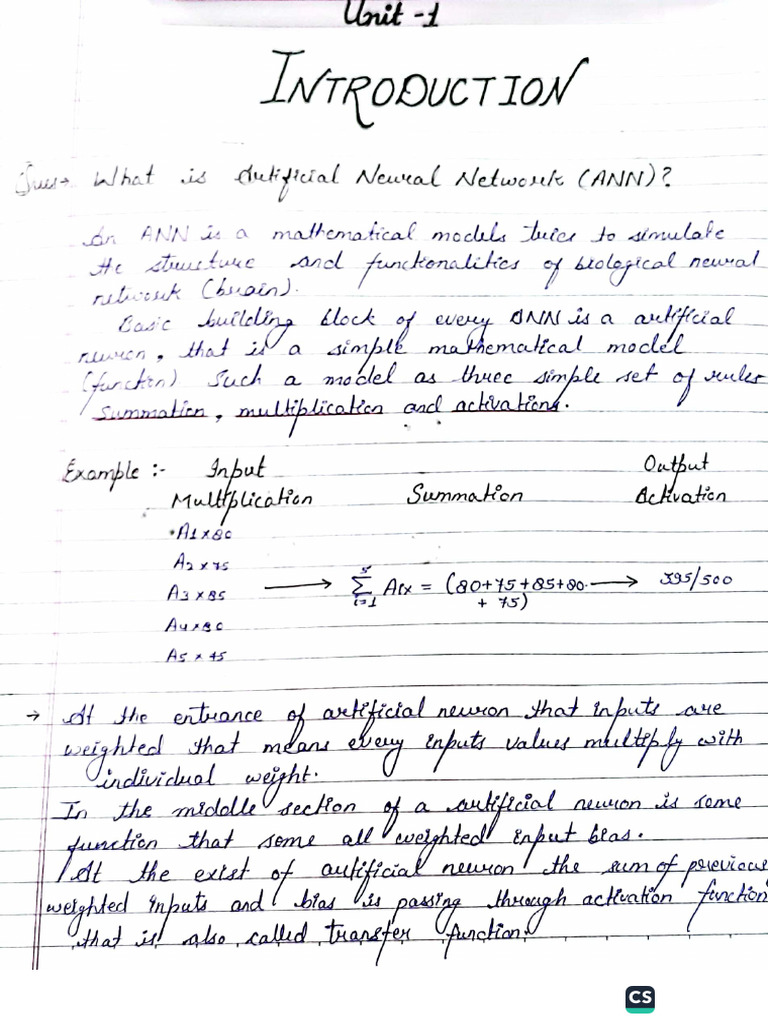 Unit -1
INTRODUCTION
Ques→ What is Artificial Neural Network (ANN)?
An ANN is a mathematical models tries to simulate
the structure and functionalities of biological neural
network (brain).
Basic building block of every ANN is a artificial
neuron, that is a simple mathematical model
(functin) Such a model as three simple set of rules
summation, multiplication and activations.
Example :- Input Output
Multiplication Summation Activation
A1×80
A2 × 75
A3 × 85 → 5 Σ i=1 Aix = (80+75+85+80 → 395/500
+ 75)
A4×80
A5 × 75
→ At the entrance of artificial neuron that inputs are
weighted that means every inputs values multiply with
individual weight.
In the middle section of a artificial neuron is some
function that some all weighted input bias.
At the exist of artificial neuron the sum of previous
weighted inputs and bias is passing through activation function
that is also called transfer function.
CS